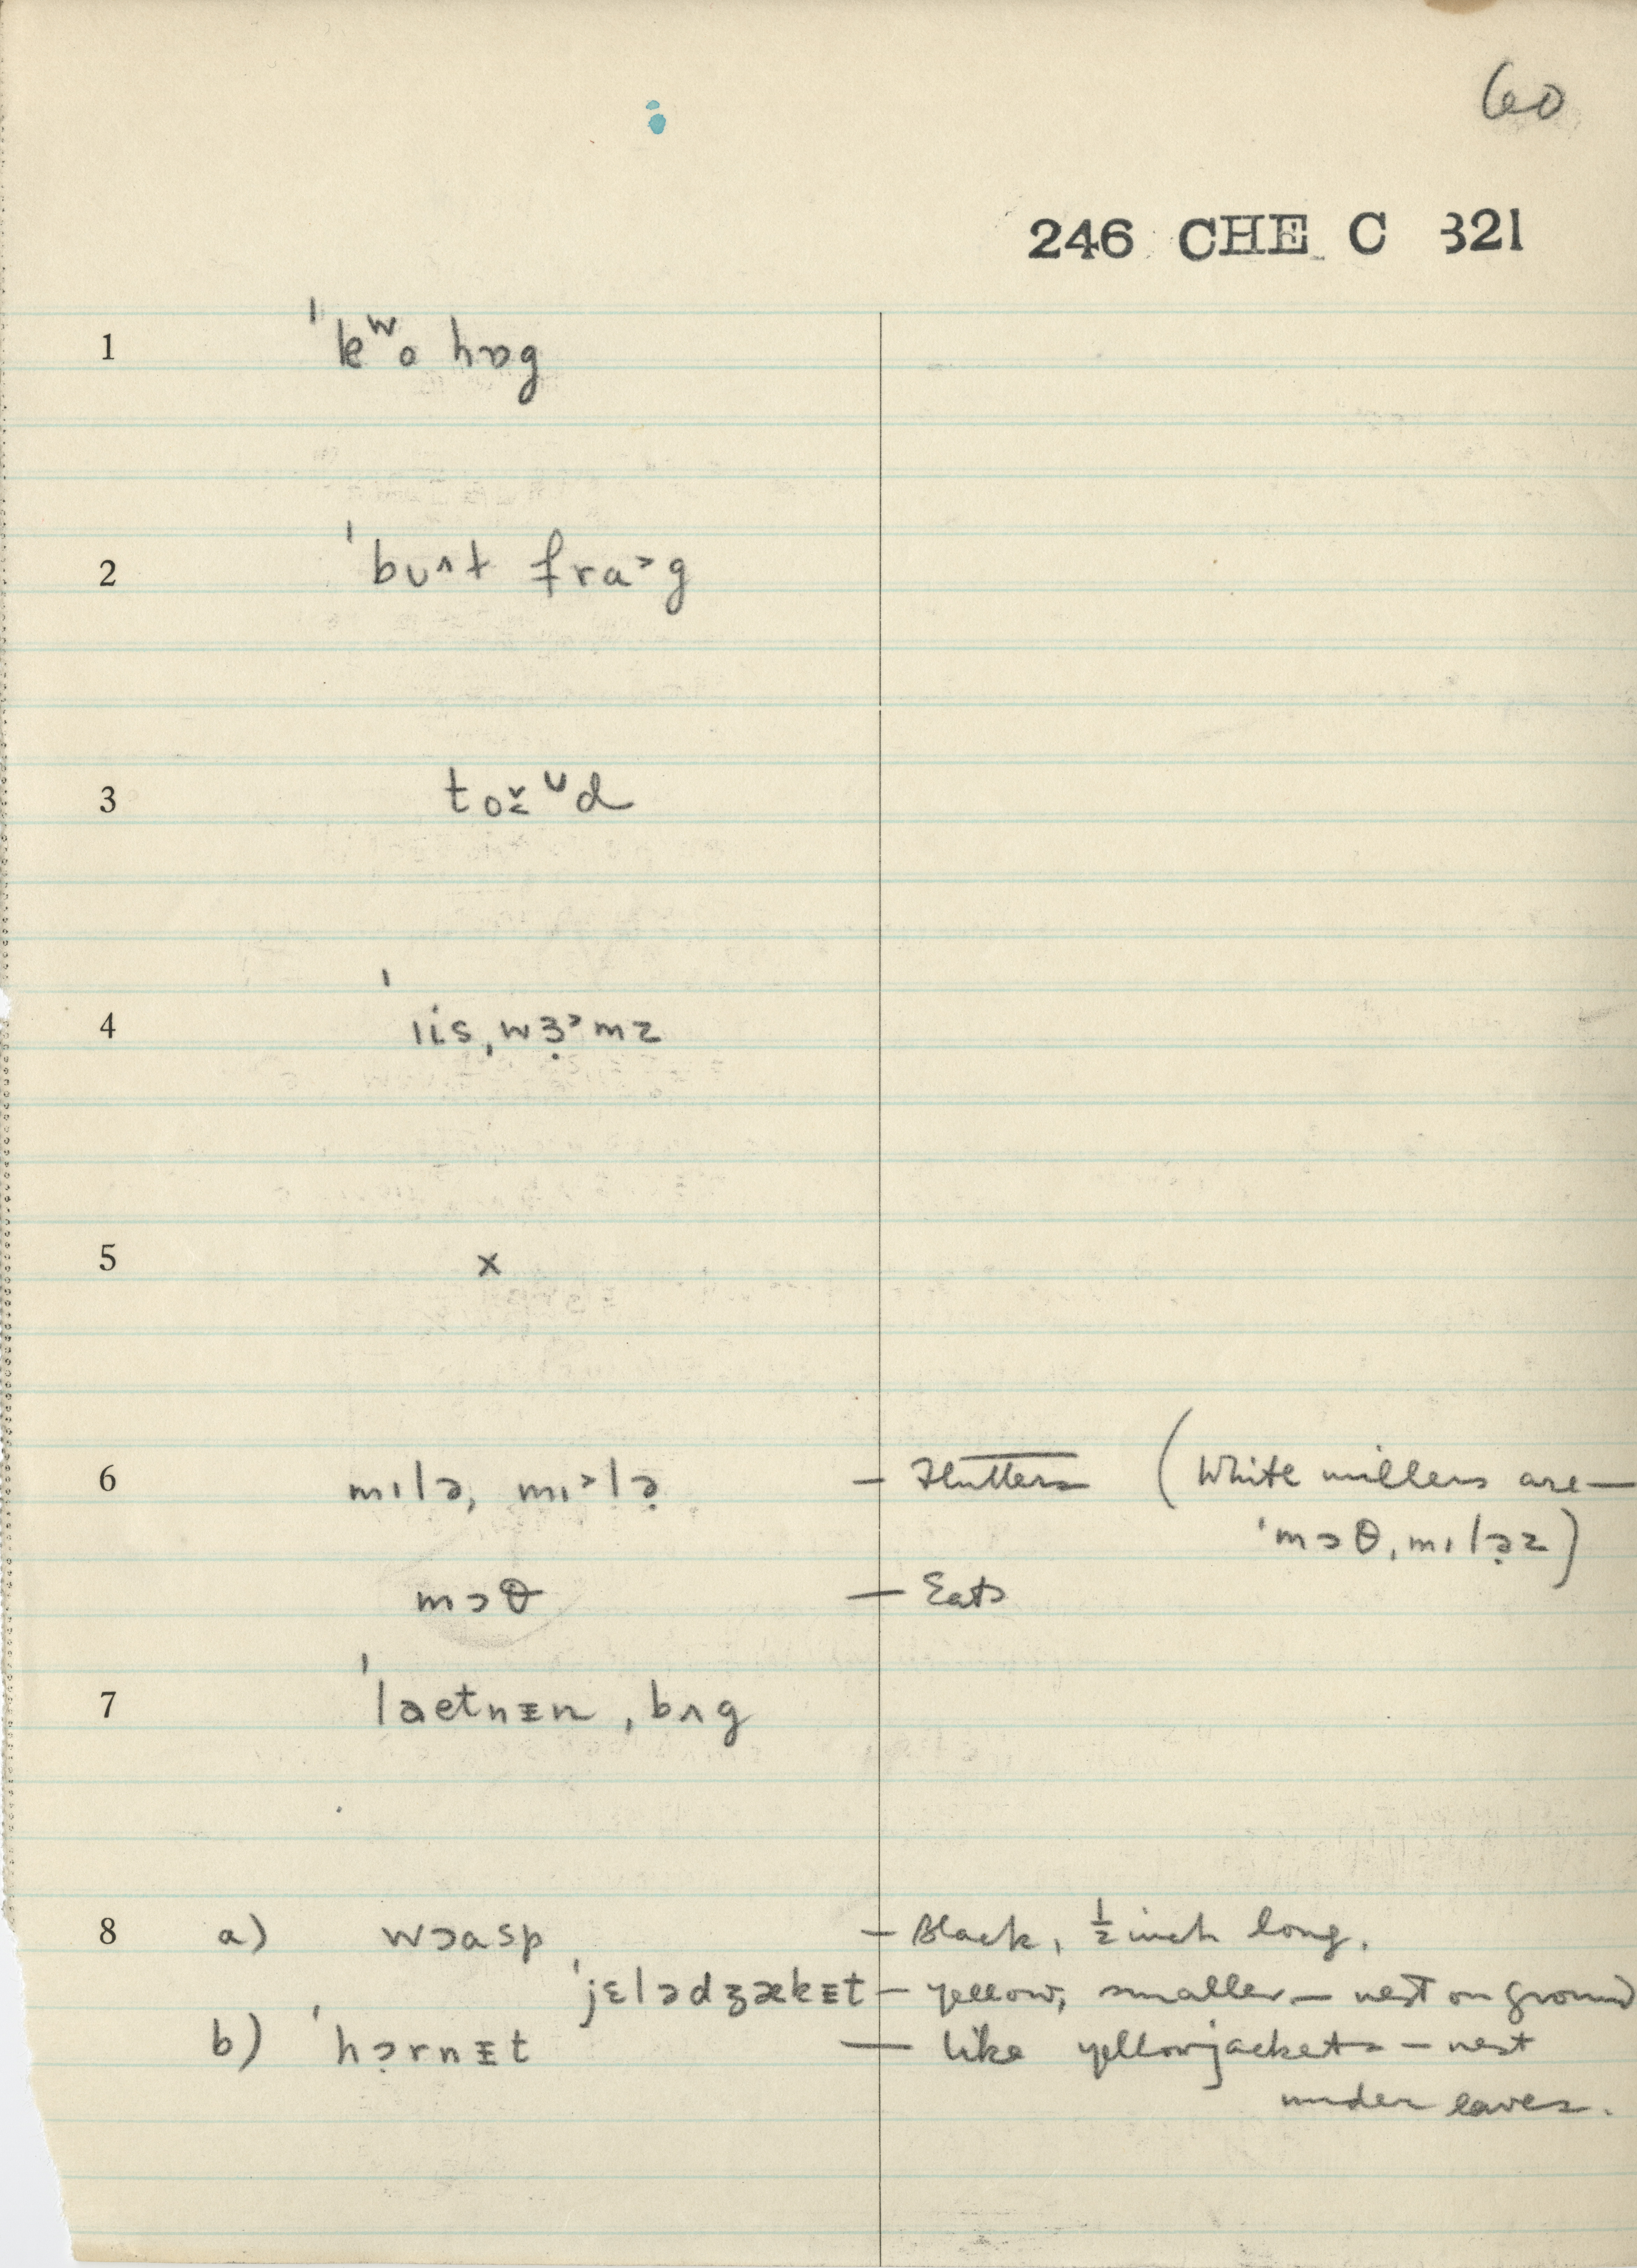 60
246 CHE C 321
1 ˈkʷo hɒg
2 ˈbʊʌt fra˃g
3 to
4 ˈıis ˌwɜ̣˃mz
5 x
6 mılə, mı˃lə̣ — Flutters (White millers are —
ˈmɔθˌmılə̣z)
mɔθ — Eats
7 ˈlaetnɪn ˌbʌg
8 a) wɔasp — Black, ½ inch long.
ˈjɛlədʒækɪt — yellow, smaller — nest on ground
b) ˈhɔ̣rnɪt — like yellowjackets — nest
under eaves.